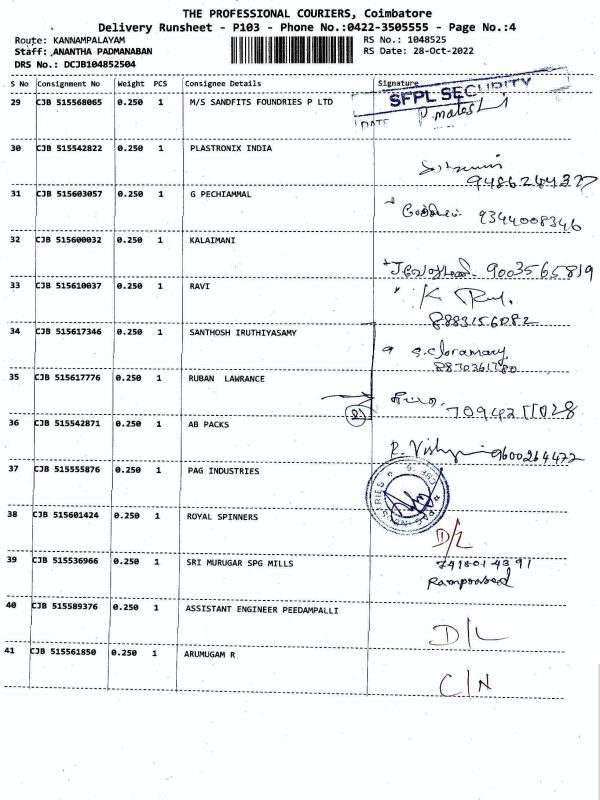 THE PROFESSIONAL COURIERS, Coimbatore
Delivery Runsheet - P103 - Phone No.:0422-3505555 - Page No.:4
Route: KANNAMPALAYAM RS No.: 1048525
Staff: ANANTHA PADMANABAN RS Date: 28-Oct-2022
DRS No.: DCJB104852504
S No Consignment No Weight PCS Consignee Details Signature
29 CJB 515568065 0.250 1 M/S SANDFITS FOUNDRIES P LTD SFPL SECURITY
DATE
30 CJB 515542822 0.250 1 PLASTRONIX INDIA
31 CJB 515603057 0.250 1 G PECHIAMMAL 9344008346
32 CJB 515600032 0.250 1 KALAIMANI
9003565819
33 CJB 515610037 0.250 1 RAVI
8883156082
34 CJB 515617346 0.250 1 SANTHOSH IRUTHIYASAMY
35 CJB 515617776 0.250 1 RUBAN LAWRANCE
36 CJB 515542871 0.250 1 AB PACKS
9600264472
37 CJB 515555876 0.250 1 PAG INDUSTRIES
38 CJB 515601424 0.250 1 ROYAL SPINNERS D/L
39 CJB 515536966 0.250 1 SRI MURUGAR SPG MILLS
40 CJB 515589376 0.250 1 ASSISTANT ENGINEER PEEDAMPALLI D/L
41 CJB 515561850 0.250 1 ARUMUGAM R C/N